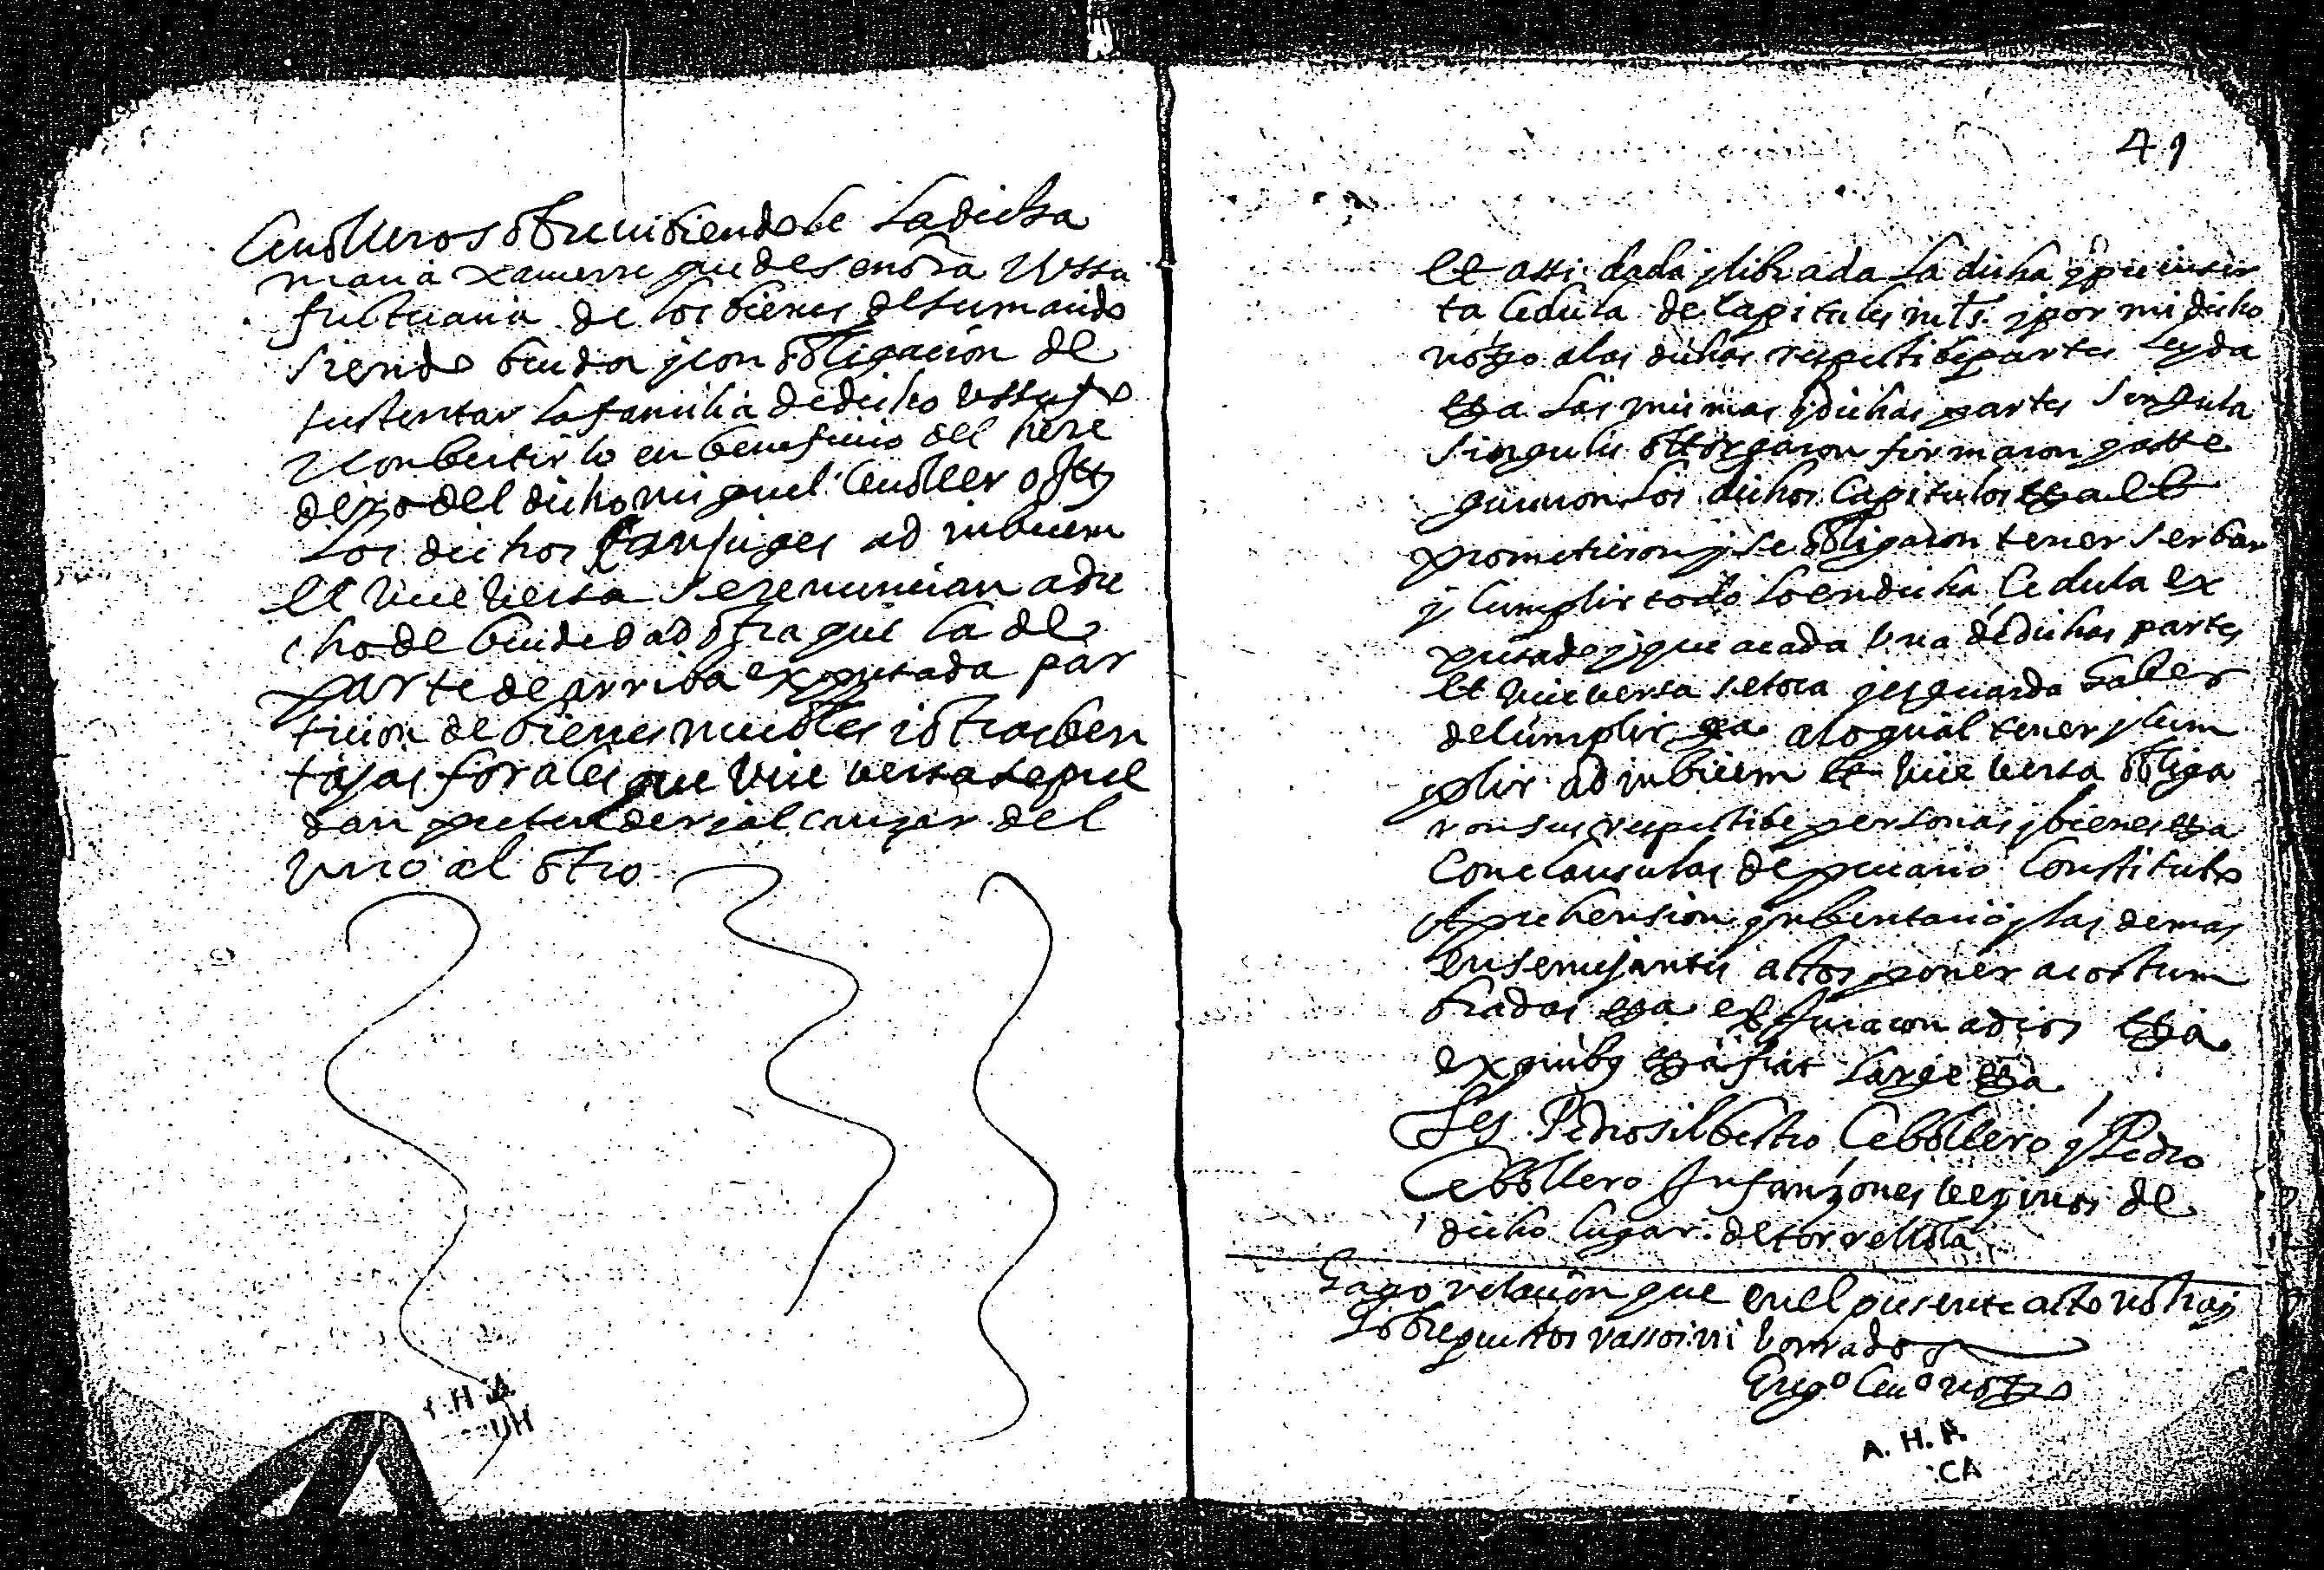 Cebollero sobrevibiendole la dicha
maria xavierre quede senora ussu
fructuaria de los bienes de su marido
siendo biuda y con obligacion de
sustentar la familia de dicho ussufto
y conbertirlo en beneficio del here
dero del dicho miguel Cebollero
los dichos Conjuges ad inbicem
et vice versa se renuncian a dre
cho de biudedad otra que la de
parte de arriba expresada par
ticion de bienes muebles i otras ben
tajas forales que vice versa se pue
dan pretender y alcançar del
uno al otro
41
Et assi dada y librada la dicha y preinser
ta cedula de capitulos mts y por mi dicho
notro a las dichas respectibe partes leyda
las mismas y dichas partes singula
singulis ottorgaron firmaron y atte
guaron los dichos Capitulos
prometieron y se obligaron tener serbar
y cumplir todo lo en dicha Cedula ex
presado y que a cada una de dichas partes
et vice versa se toca y esguarda
de cumplir a lo qual tener y cum
plir ad inbicem et vice versa obliga
ron sus respectibe personas y bienes
con clausulas de precario Constituto
aprehension ynbentario y las demas
en semejantes actos poner acostum
bradas et juraron a dios
ex quibus fiat large
Tes Pedro silbestro Cebollero y Pedro
Cebollero Infanzones vezinos de
dicho lugar de torrellola
Hago relacion que en el presente acto no hay
sobrepuestos rassos ni borrados
Greg<sup>o</sup> notro
A. H. P.
CA